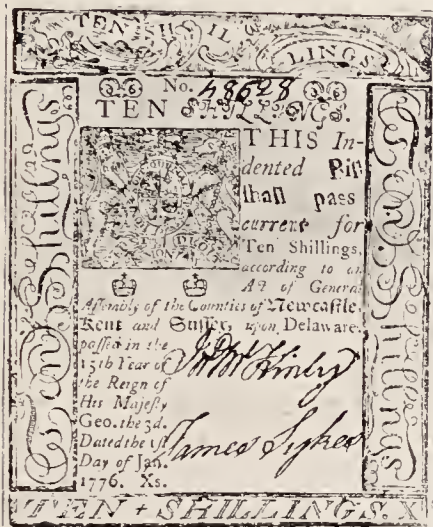 TEN SHIL LINGS
No. 48628
TEN SHILLINGS.
THIS In-
dented Bill
ſhall paſs
current for
Ten Shillings,
according to an
Act of General
Aſſembly of the Counties of Newcaſtle,
Kent and Suſſex, upon Delaware,
paſſed in the
15th Year of
the Reign of
His Majeſty
Geo. the 3d.
Dated the 1ſt
Day of Jan.
1776. Xs.
Jno McKinly
James Sykes
Ten Shillings
Ten Shillings
TEN + SHILLINGS. X